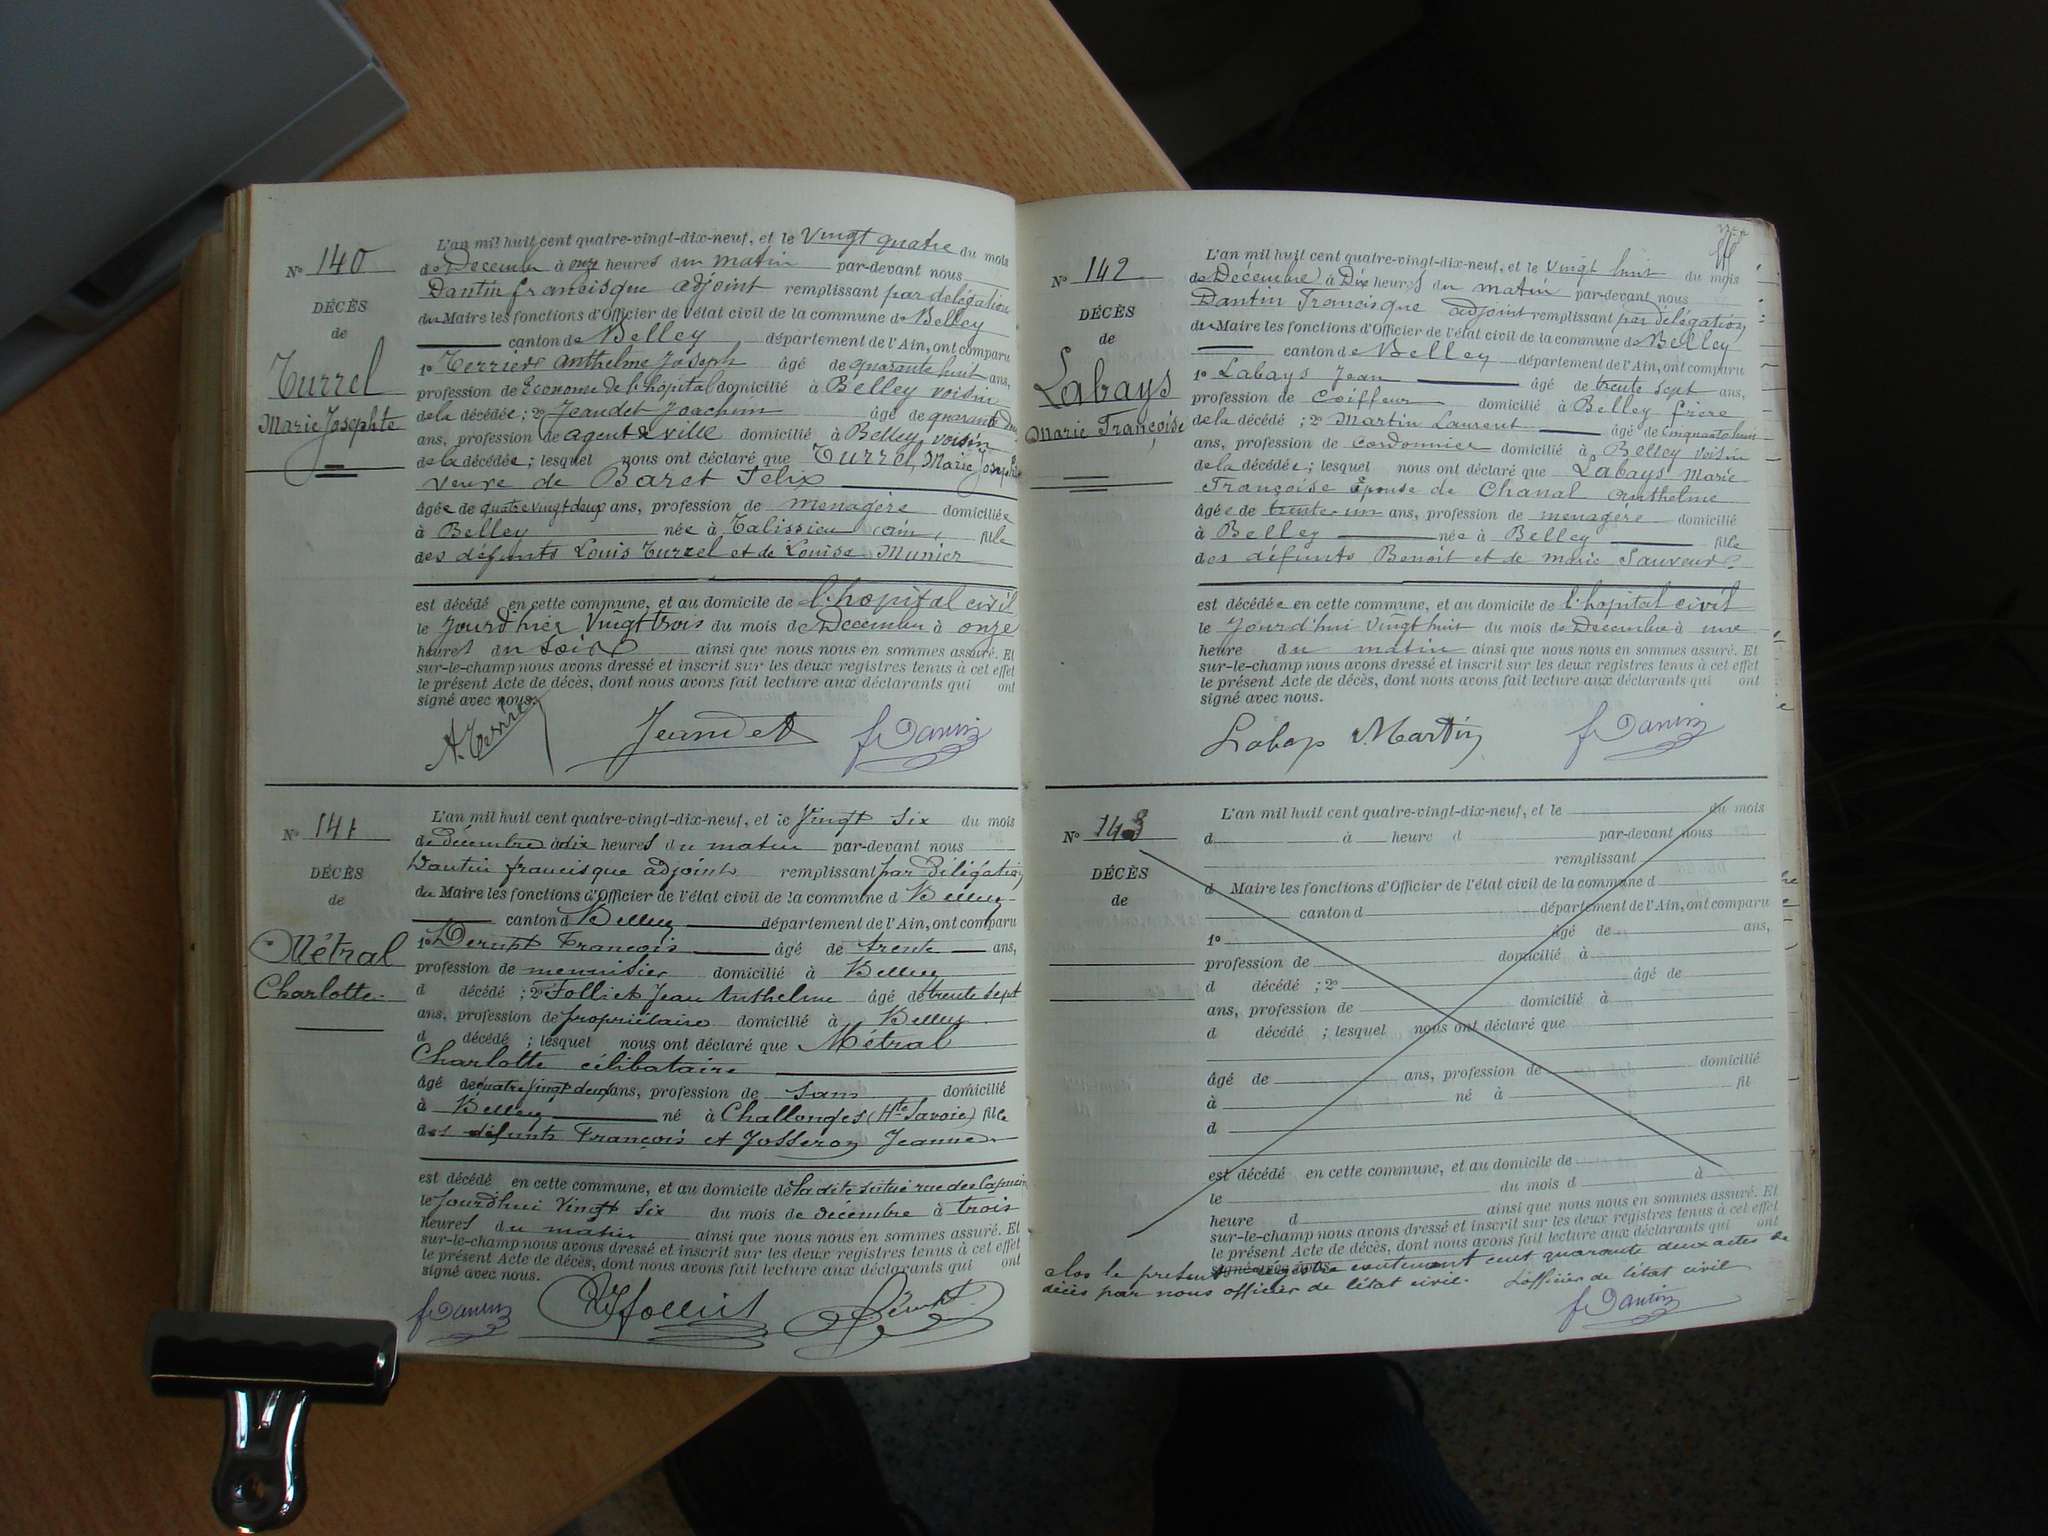 L'an mil huit cent quatre-vingt-dix-neuf, et le Vingt quatre du mois
N° 140
de Decembre à onze heures du matin par-devant nous
Dantin francisque adjoint remplissant par délégation
DÉCÈS
du Maire les fonctions d'Officier de l'état civil de la commune de Belley
de
canton de Belley département de l'Ain, ont comparu
Turrel
1° Terrier Anthelme Joseph âgé de quarante huit ans,
profession de Econome de l'hopital domicilié à Belley voisin
Marie Josephte
de la décédée ; 2° Jeandet Joachim âgé de quarante
ans, profession de agent de ville domicilié à Belley voisin
de la décédée ; lesquel nous ont déclaré que Turrel Marie Josephte
veuve de Baret Felix
âgée de quatre vingt deux ans, profession de menagère domiciliée
à Belley née à Talissieu ain, fille
des défunts Louis Turrel et de Louise Munier
est décédé en cette commune, et au domicile de l'hopital civil
le jourd'hier Vingt trois du mois de Decembre à onze
heures du soir ainsi que nous nous en sommes assuré. Et
sur-le-champ nous avons dressé et inscrit sur les deux registres tenus à cet effet
le présent Acte de décès, dont nous avons fait lecture aux déclarants qui ont
signé avec nous.
A. Terrier Jeandet f Dantin
L'an mil huit cent quatre-vingt-dix-neuf, et le Vingt six du mois
N° 141
de décembre à dix heures du matin par-devant nous
Dantin francisque adjoint remplissant par Délégation
DÉCÈS
du Maire les fonctions d'Officier de l'état civil de la commune d Belley
de
canton d Belley département de l'Ain, ont comparu
Métral
1° Derupt François âgé de trente ans,
profession de menuisier domicilié à Belley
Charlotte
d décédé ; 2° Folliet Jean Anthelme âgé de trente sept
ans, profession de propriétaire domicilié à Belley
d décédé ; lesquel nous ont déclaré que Métral
Charlotte célibataire
âgé de quatre vingt deux ans, profession de sans domicilié
à Belley né à Challonges (Hte Savoie) fille
des défunts François et Josseron Jeanne
est décédé en cette commune, et au domicile de la dite situé rue des Capucins
le jourd'hui Vingt six du mois de décembre à trois
heures du matin ainsi que nous nous en sommes assuré. Et
sur-le-champ nous avons dressé et inscrit sur les deux registres tenus à cet effet
le présent Acte de décès, dont nous avons fait lecture aux déclarants qui ont
signé avec nous.
f Dantin folliet Derupt
L'an mil huit cent quatre-vingt-dix-neuf, et le Vingt huit du mois
N° 142
de Décembre à Dix heures du matin par-devant nous
Dantin Francisque adjoint remplissant par délégation
DÉCÈS
du Maire les fonctions d'Officier de l'état civil de la commune de Belley
de
canton de Belley département de l'Ain, ont comparu
Labays
1° Labays Jean âgé de trente sept ans,
profession de Coiffeur domicilié à Belley frère
Marie Françoise
de la décédé ; 2° Martin Laurent âgé de cinquante huit
ans, profession de cordonnier domicilié à Belley voisin
de la décédée ; lesquel nous ont déclaré que Labays Marie
Françoise Épouse de Chanal Anthelme
âgée de trente-un ans, profession de menagère domicilié
à Belley née à Belley fille
des défunts Benoit et de marie Sauveur
est décédée en cette commune, et au domicile de l'hopital civil
le jourd'hui vingt huit du mois de Décembre à une
heure du matin ainsi que nous nous en sommes assuré. Et
sur-le-champ nous avons dressé et inscrit sur les deux registres tenus à cet effet
le présent Acte de décès, dont nous avons fait lecture aux déclarants qui ont
signé avec nous.
Labays Martin f Dantin
L'an mil huit cent quatre-vingt-dix-neuf, et le du mois
N° 143
d à heure d par-devant nous
remplissant
DÉCÈS
d Maire les fonctions d'Officier de l'état civil de la commune d
de
canton d département de l'Ain, ont comparu
1° âgé de ans,
profession de domicilié à
d décédé ; 2° âgé de
ans, profession de domicilié à
d décédé ; lesquel nous ont déclaré que
âgé de ans, profession de domicilié
à né à fil
d
est décédé en cette commune, et au domicile de
le du mois d à
heure d ainsi que nous nous en sommes assuré. Et
sur-le-champ nous avons dressé et inscrit sur les deux registres tenus à cet effet
le présent Acte de décès, dont nous avons fait lecture aux déclarants qui ont
signé avec nous.
clos le présent registre contenant cent quarante deux actes de
décès par nous officier de l'état civil. L'officier de l'état civil
f Dantin